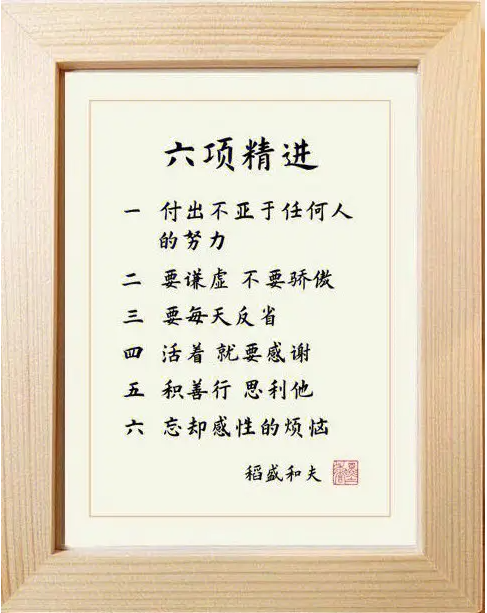 六项精进
一 付出不亚于任何人
的努力
二 要谦虚 不要骄傲
三 要每天反省
四 活着 就要感谢
五 积善行 思利他
六 忘却感性的烦恼
稻盛和夫